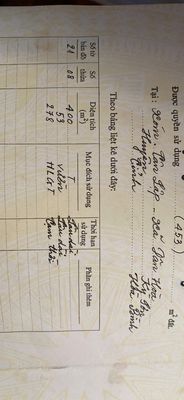 (453)
Được quyền sử dụng m² đất
Tại: Xóm Tân Lập Xã Tân Hoà
Huyện
Tỉnh Hoà Bình
Theo bảng liệt kê dưới đây:
Số tờ bản đồ Số thửa Diện tích (m²) Mục đích sử dụng Thời hạn sử dụng Phần ghi thêm
21 08 400 T Lâu dài
53 Vườn Lâu dài
278 HLGT Tạm thời